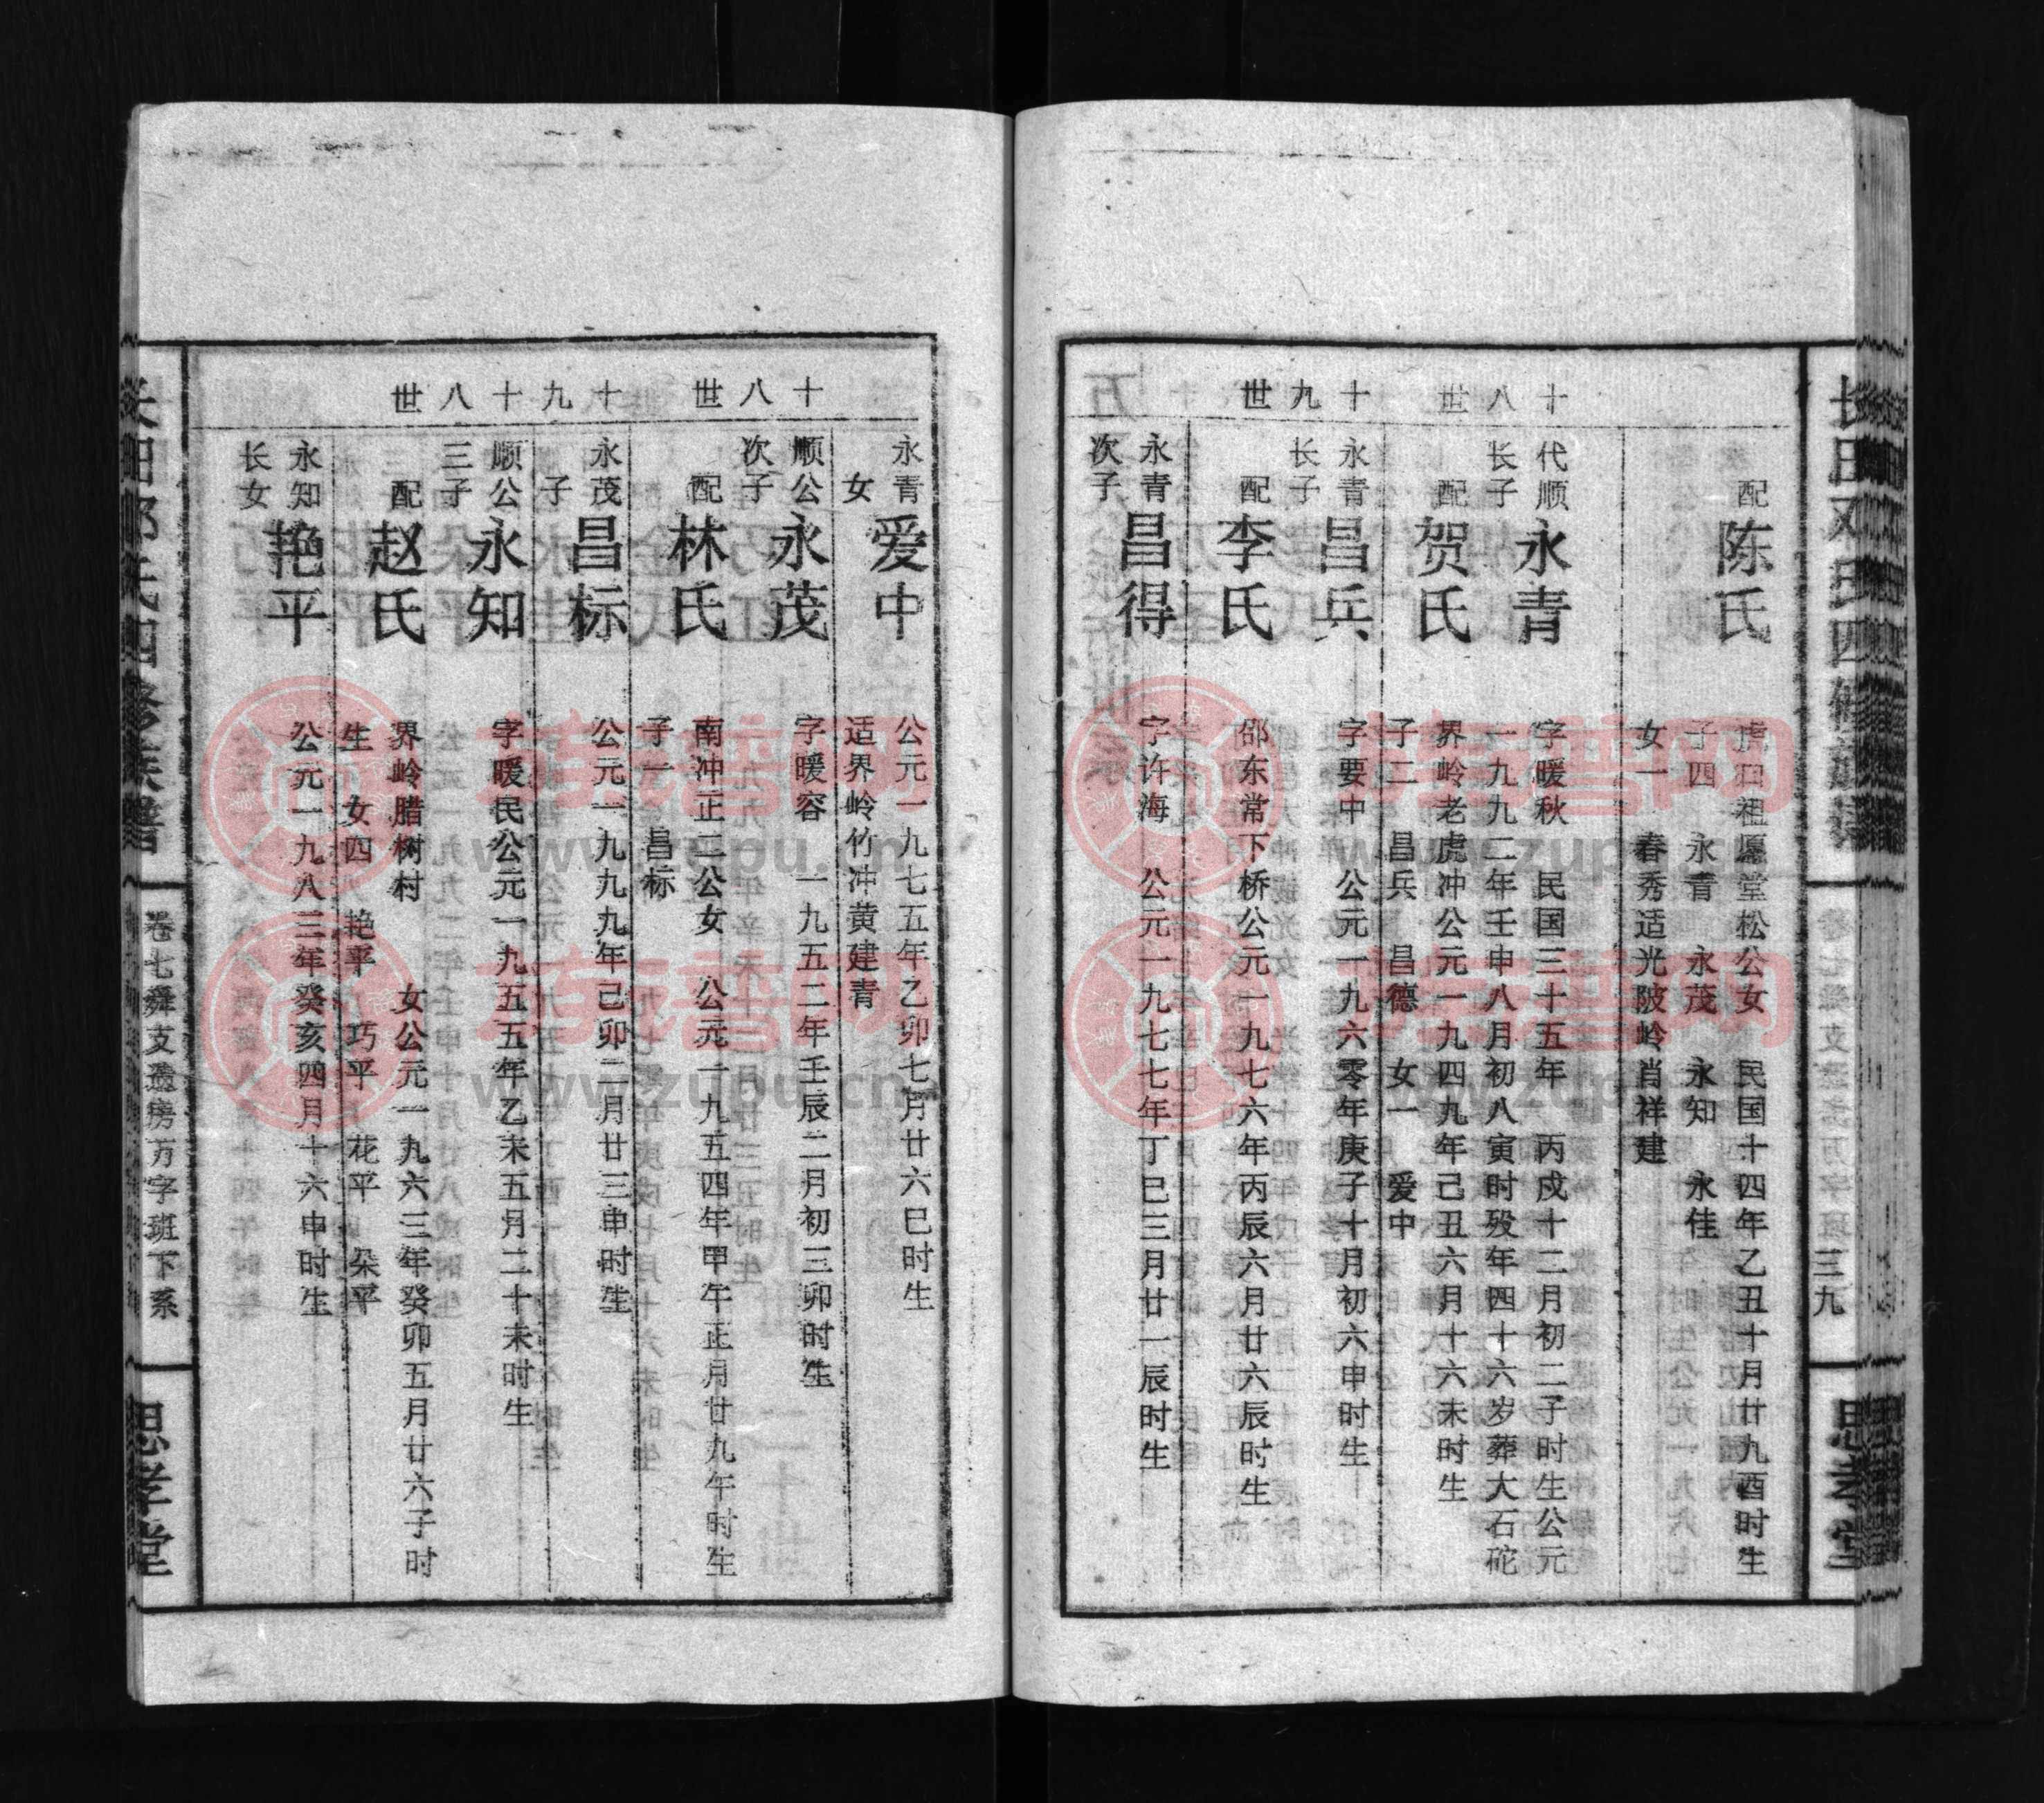 三九
思孝堂
配 陈氏 虎口祖愿堂松公女 民国十四年乙丑十月廿九酉时生
子四 永青 永茂 永知 永佳
女一 春秀适光陂岭肖祥建
十八世
代顺长子 永青 字暖秋 民国三十五年 丙戍十二月初二子时生公元
一九九二年壬申八月初八寅时殁年四十六岁葬大石砣
配 贺氏 界岭老虎冲公元一九四九年己丑六月十六未时生
子二 昌兵 昌德 女一 爱中
十九世
永青长子 昌兵 字要中 公元一九六零年庚子十月初六申时生
配 李氏 邵东常下桥公元一九七六年丙辰六月廿六辰时生
永青次子 昌得 字许海 公元一九七七年丁巳三月廿一辰时生
永青女 爱中 公元一九七五年乙卯七月廿六巳时生
适界岭竹冲黄建青
十八世
顺公次子 永茂 字暖容 一九五二年壬辰二月初三卯时生
配 林氏 南冲正二公女 公元一九五四年甲午正月廿九午时生
子一 昌标
十九
永茂子 昌标 公元一九九九年己卯二月廿三申时生
十八世
顺公三子 永知 字暖民公元一九五五年乙未五月二十未时生
配 赵氏 界岭腊树村 女公元一九六三年癸卯五月廿六子时
生 女四 艳平 巧平 花平 朵平
永知长女 艳平 公元一九八三年癸亥四月十六申时生
氏四修族谱
卷七舜支逊房万字班下系
思孝堂
族谱网
www.zupu.cn
族谱网
www.zupu.cn
族谱网
www.zupu.cn
族谱网
www.zupu.cn